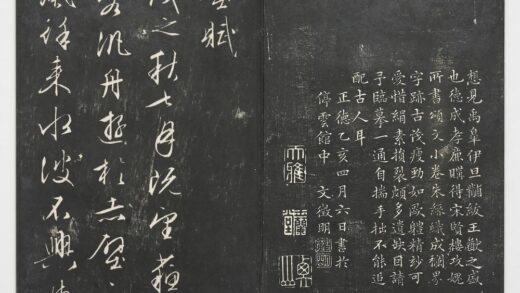 想見禹皋伊旦龍紱王歡之盛
也德成孝廉購得宋賢樓攻媿
所書頌文小卷朱絲織成欄界
字跡古淡瘦勁如歐精妙可
受惜絹素損裂頗多遺缺因請
子臨摹一通自揣手拙不能追
配古人耳
正德乙亥四月六日書於
停雲館中 文徵明
賦
戌之秋七月既望蘇
客泛舟遊於赤壁
風徐來水波不興